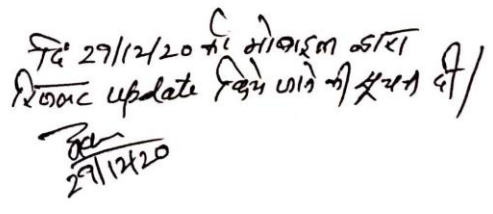 दि 29/12/20 को मोबाइल द्वारा
रिकार्ड update किये जाने की सूचना दी।
29/12/20